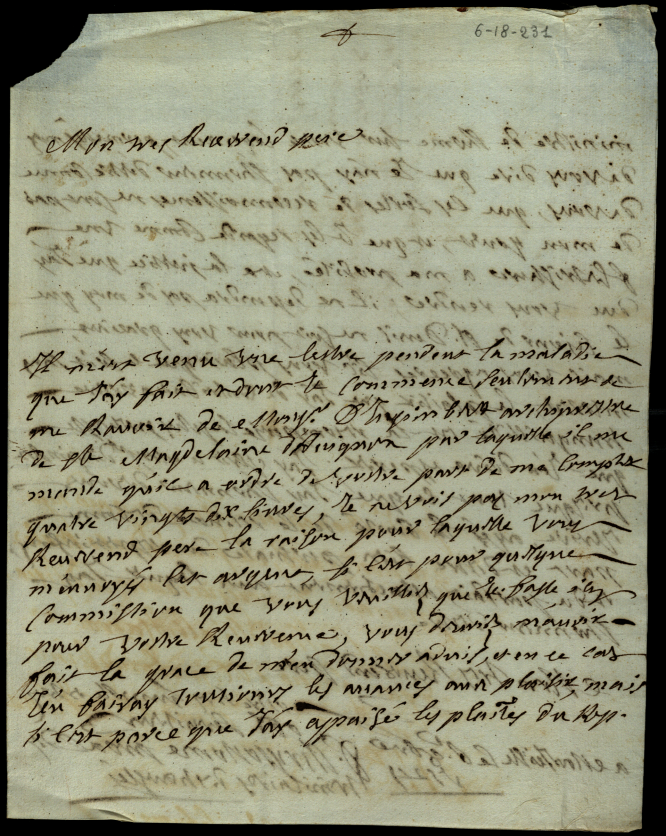 6-18-231
Mon tres Reverend pere
Il m'est venu une lettre pendent la maladie
que J'ay fait et dont Je commence seulement a
me Ravoir de Monsr. archiprestre
de Ste Magdelaine d'Avignon par laquelle il me
mande qu'il a ordre de vostre part de me compter
quatre vingts dix livres, Je ne vois pas mon tres
Reverend pere la raison pour laquelle vous
m'envoyés cet argent, si c'est pour quelque
commission que vous vouilliés que Je fasse icy
pour vostre Reverence, vous devriés m'avoir
fait la grace de m'en donner advis, et en ce cas
J'en fairay tousiours les avances avec plaisir, mais
si c'est parce que J'ay appaisé les plaites du Rp.